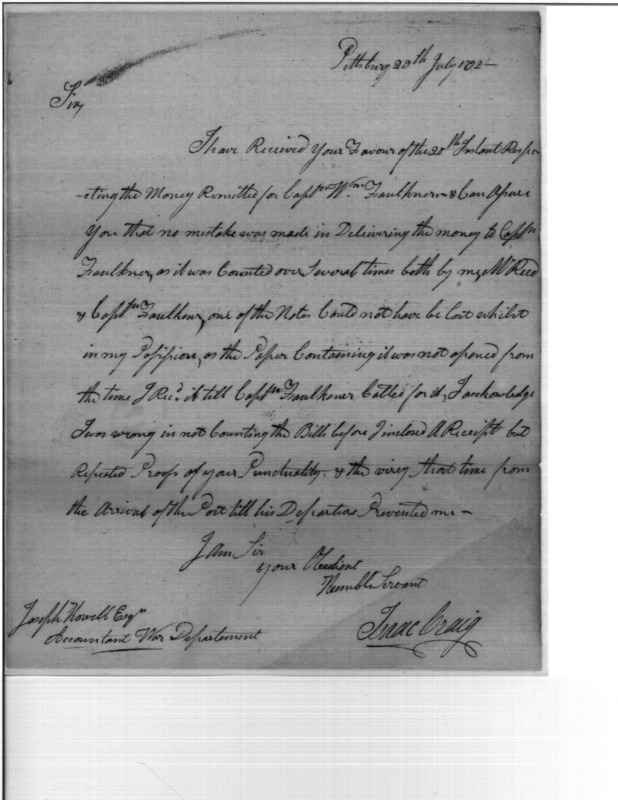 Pittsburg 28th July 1792
Sir,
I have Received Your Favour of the 20th Instant Respe-
-cting the Money Remitted for Captn Wm Faulkner & Can Assure
You that no mistake was made in Delivering the money to Captn
Faulkner, as it was Counted over Several times both by me, Mr Reed
& Captn Faulkner, one of the Notes Could not have be lost whilst
in my Possission, as the Paper Containing it was not opened from
the time I Recd it till Captn Faulkener Called for it, I acknowledge
I was wrong in not Counting the Bills before I inclosed A Receipt but
Repeated Proofs of your Punctuality & the very short time from
the Arrival of the Post till his Departure Prevented me -
I am Sir
your Obedient
Humble Servant
Isaac Craig
Joseph Howell Esqr
Accountant War Department